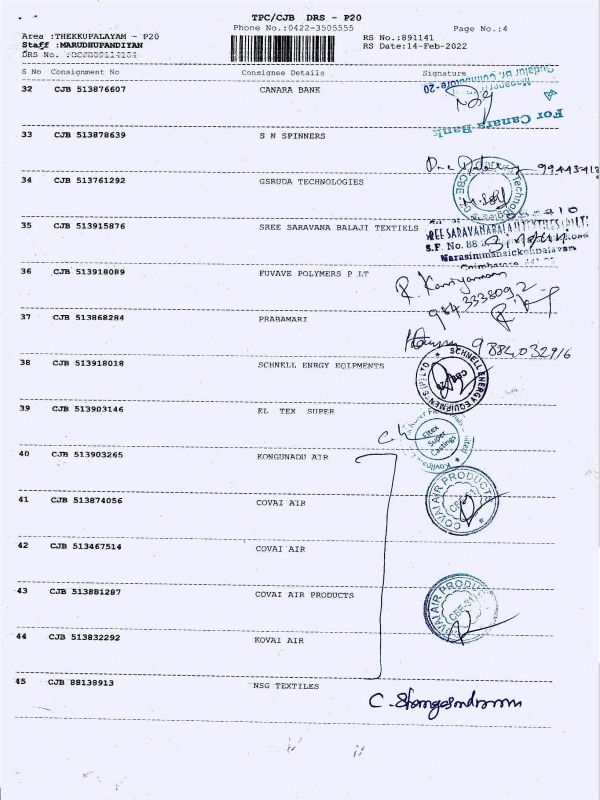 TPC/CJB DRS - P20
Phone No.:0422-3505555
Page No.:4
Area :THEKKUPALAYAM - P20
RS No.:891141
Staff :MARUDHUPANDIYAN
RS Date:14-Feb-2022
DRS No. :
S No Consignment No Consignee Details Signature
32 CJB 513876607 CANARA BANK
For Canara Bank
33 CJB 513878639 S N SPINNERS
34 CJB 513761292 GSRUDA TECHNOLOGIES
35 CJB 513915876 SREE SARAVANA BALAJI TEXTIELS
S.F. No. 88
36 CJB 513918089 FUVAVE POLYMERS P LT
984 3338092
37 CJB 513868284 PRABAMARI
9884032916
38 CJB 513918018 SCHNELL ENRGY EQIPMENTS
SCHNELL ENERGY EQUIPMENTS (P) LTD
39 CJB 513903146 EL TEX SUPER
Eltex Super Castings
40 CJB 513903265 KONGUNADU AIR
41 CJB 513874056 COVAI AIR
COVAI AIR PRODUCTS
42 CJB 513467514 COVAI AIR
43 CJB 513881287 COVAI AIR PRODUCTS
COVAI AIR PRODUCTS
44 CJB 513832292 KOVAI AIR
45 CJB 88138913 NSG TEXTILES